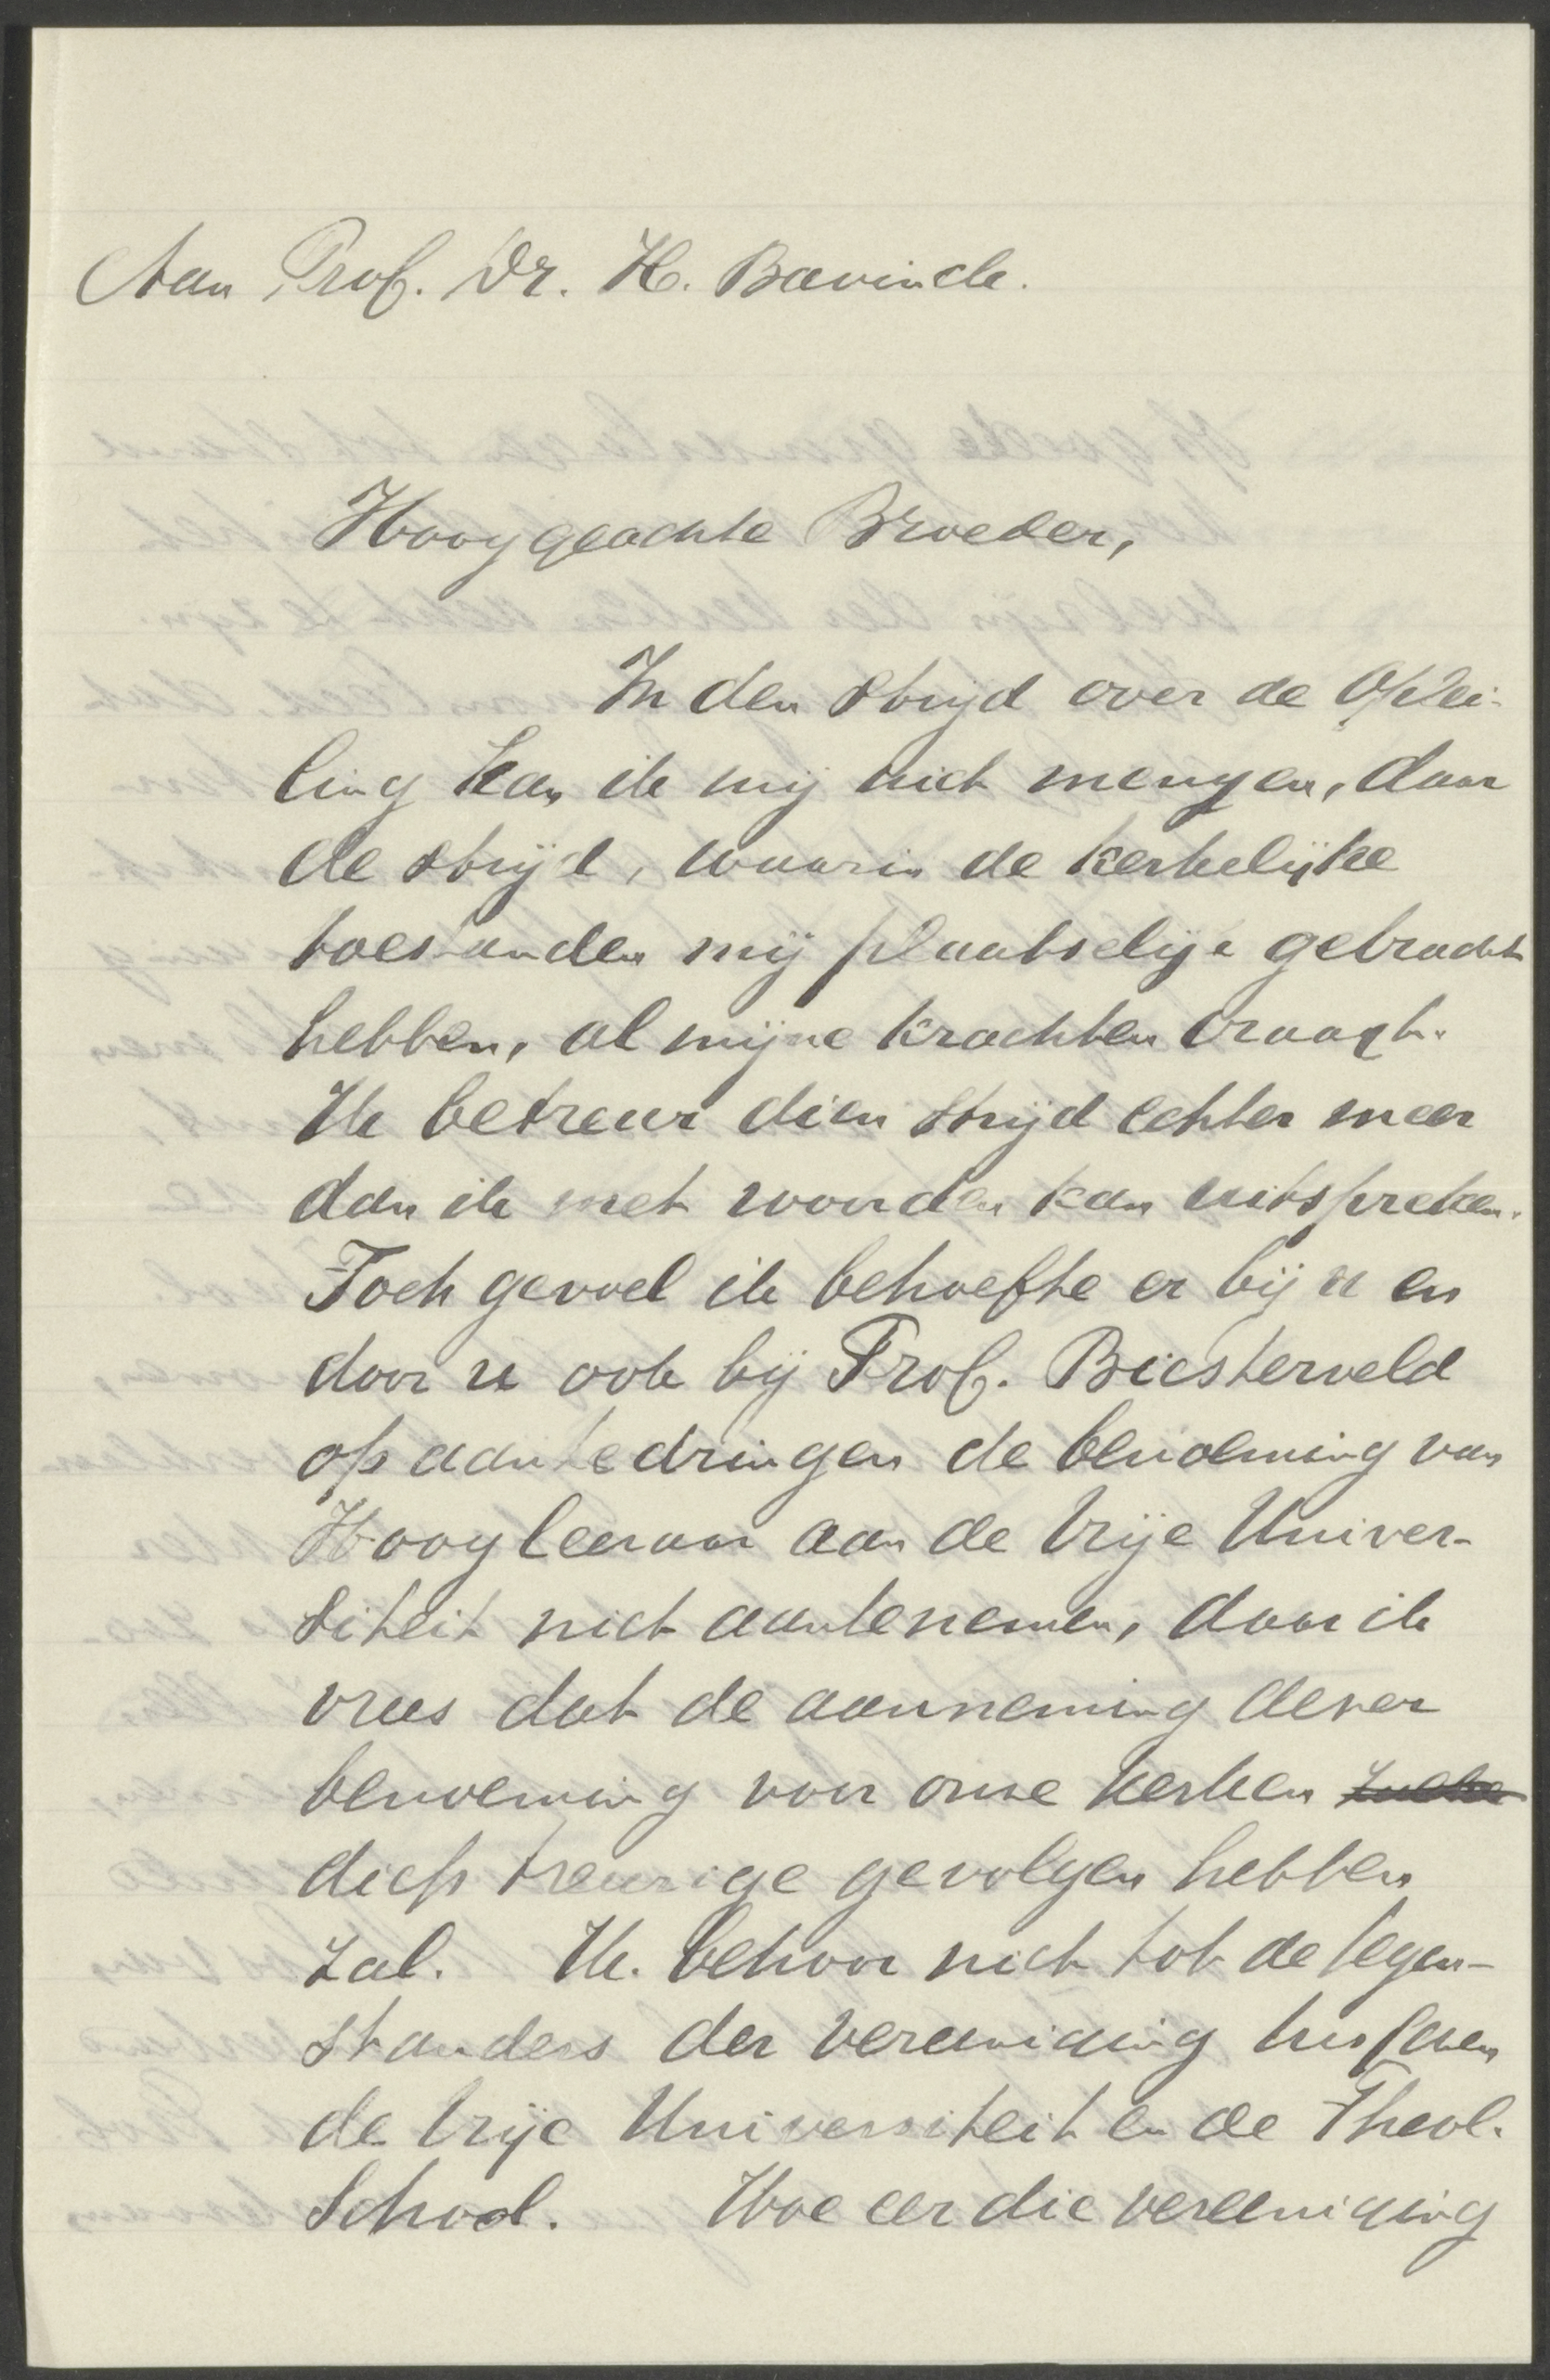 Aan Prof. Dr. H. Bavinck.
Hooggeachte Broeder,
In den strijd over de oplei-
ding kan ik mij niet mengen, daar
de strijd, waarin de kerkelijke
toestanden mij plaatselijk gebracht
hebben, al mijne krachten vraagt.
Ik betreur dien strijd echter meer
dan ik met woorden kan uitspreken.
Toch gevoel ik behoefte er bij u en
door u ook bij Prof. Biesterveld
op aantedringen de benoeming van
Hoogleeraar aan de Vrije Univer-
siteit niet aantenemen, daar ik
vrees dat de aanneming dezer
benoeming voor onze kerken
diep treurige gevolgen hebben
zal. Ik behoor niet tot de tegen-
standers der vereeniging tusschen
de Vrije Universiteit en de Theol.
School. Hoe eer die vereeniging